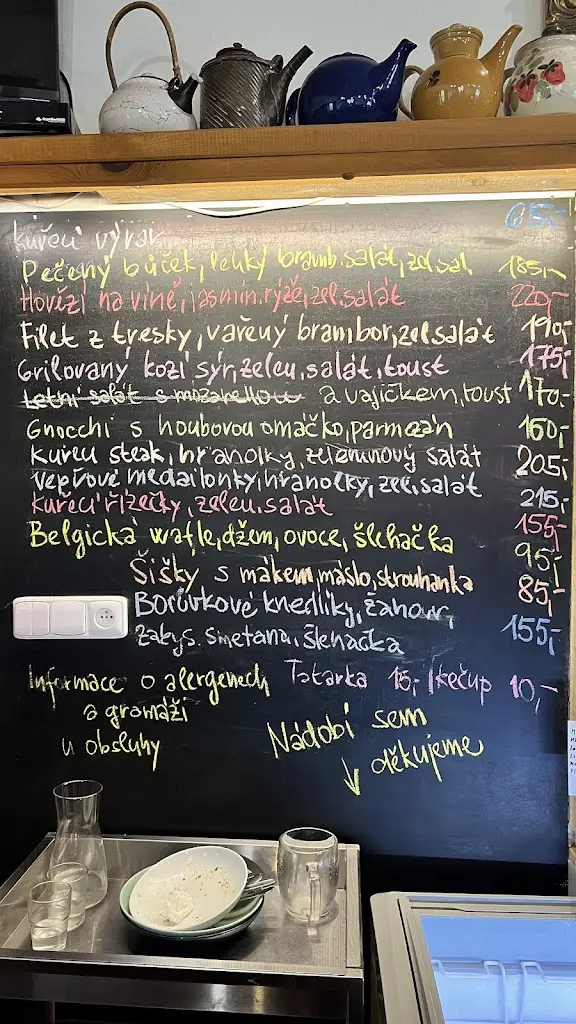 kuřecí vývar 65,-
Pečený bůček, lehký bramb. salát, zel. sal. 185,-
Hovězí na víně, jasmín. rýže, zel. salát 220,-
Filet z tresky, vařený brambor, zel. salát 190,-
Grilovaný kozí sýr, zelen. salát, toust 175,-
Letní salát s mozarellou a vajíčkem, toust 170,-
Gnocchi s houbovou omáčko, parmezán 160,-
Kuřecí steak, hranolky, zeleninový salát 205,-
Vepřové medailonky, hranolky, zel. salát 215,-
Kuřecí řízečky, zelen. salát 155,-
Belgická wafle, džem, ovoce, šlehačka 95,-
Šišky s mákem, máslo, strouhanka 85,-
Borůvkové knedlíky, žahour,
zakys. smetana, šlehačka 155,-
Informace o alergenech Tatarka 15,- /kečup 10,-
a gramáži
u obsluhy
Nádobí sem
děkujeme